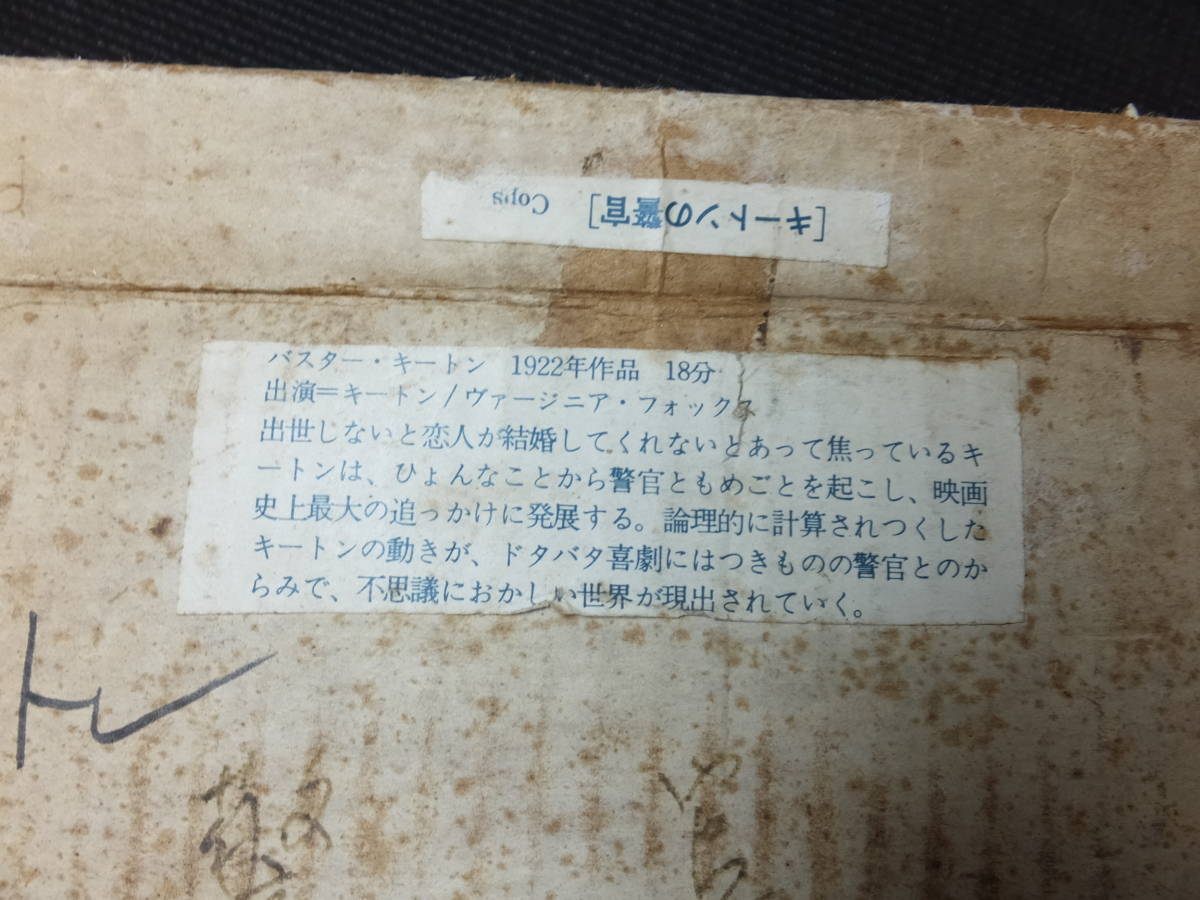 [キートンの警官] Cops
バスター・キートン 1922年作品 18分
出演=キートン/ヴァージニア・フォックス
出世しないと恋人が結婚してくれないとあって焦っているキ
ートンは、ひょんなことから警官ともめごとを起こし、映画
史上最大の追っかけに発展する。論理的に計算されつくした
キートンの動きが、ドタバタ喜劇にはつきものの警官とのか
らみで、不思議におかしい世界が現出されていく。
トン